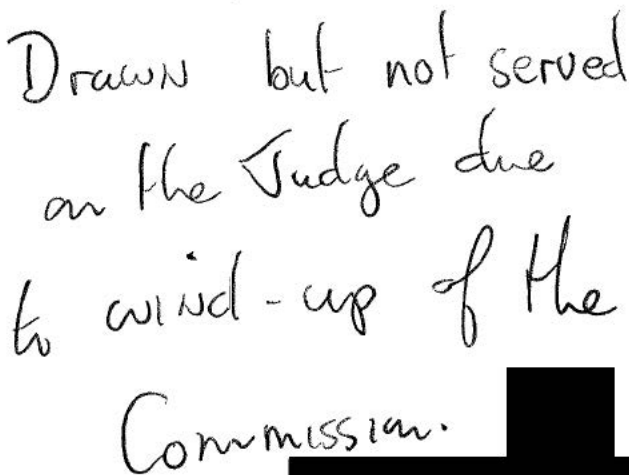 Drawn but not served
on the Judge due
to wind-up of the
Commission.